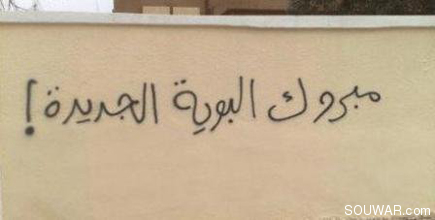 مبروك البوية الجديدة!
SOUWAR.com